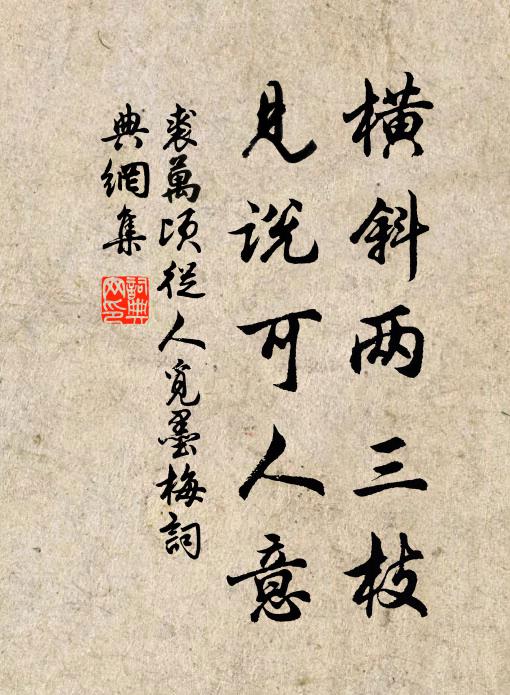 橫斜两三枝
見說可人意
裘萬頃從人覓墨梅詞
典網集
詞典
网印